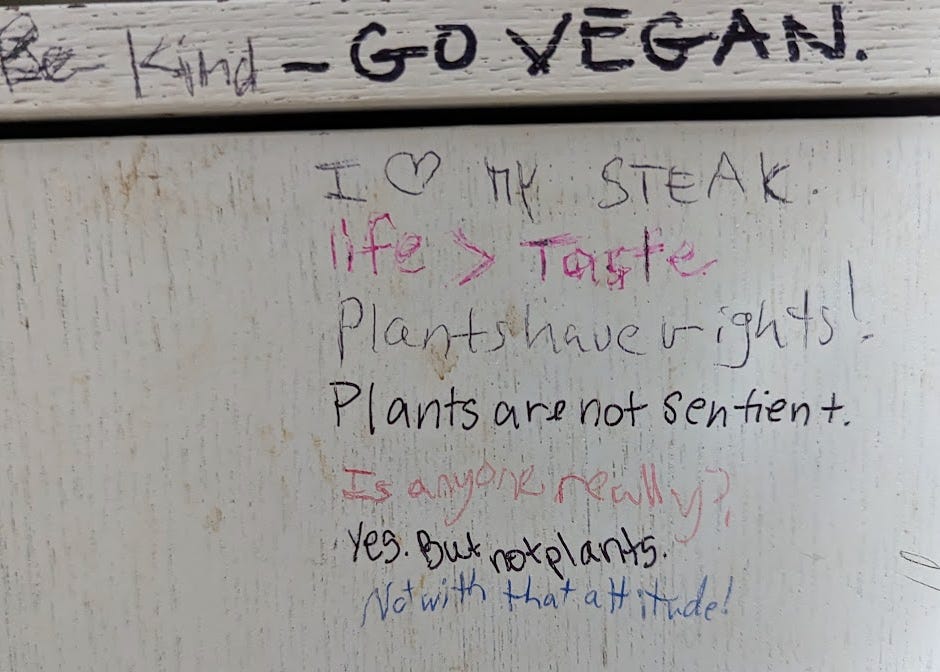 Be Kind - GO VEGAN.
I ♡ MY STEAK.
life > Taste
Plants have rights!
Plants are not sentient.
Is anyone really?
Yes. But not plants.
Not with that attitude!